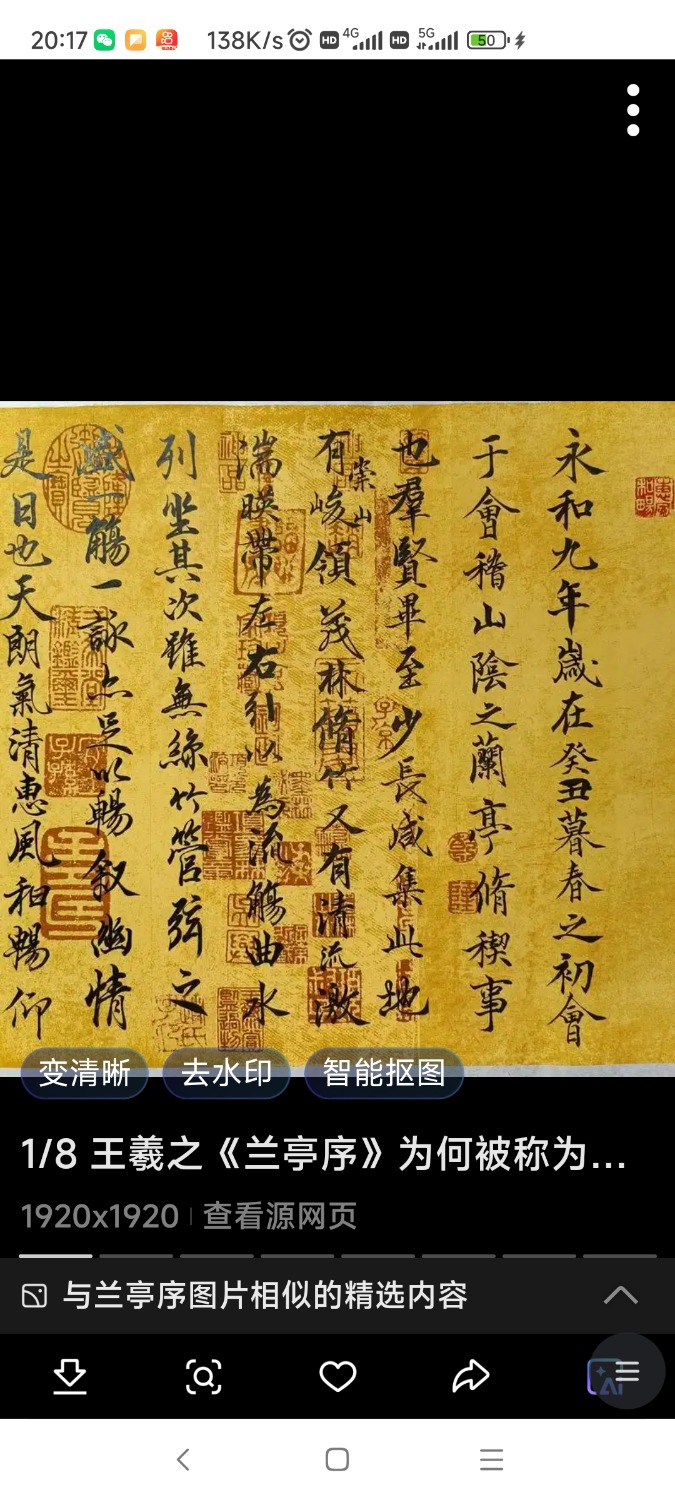 20:17 138K/s HD 4G HD 5G 50
永和九年歲在癸丑暮春之初會
于會稽山陰之蘭亭脩稧事
也羣賢畢至少長咸集此地
有崇山峻領茂林脩竹又有清流激
湍暎帶左右引以為流觴曲水
列坐其次雖無絲竹管弦之
盛一觴一詠亦足以暢叙幽情
是日也天朗氣清惠風和暢仰
变清晰 去水印 智能抠图
1/8 王羲之《兰亭序》为何被称为...
1920x1920 查看源网页
与兰亭序图片相似的精选内容
AI